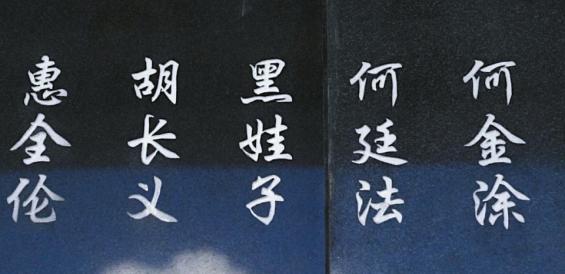 何金涂
何廷法
黑娃子
胡长义
惠全伦